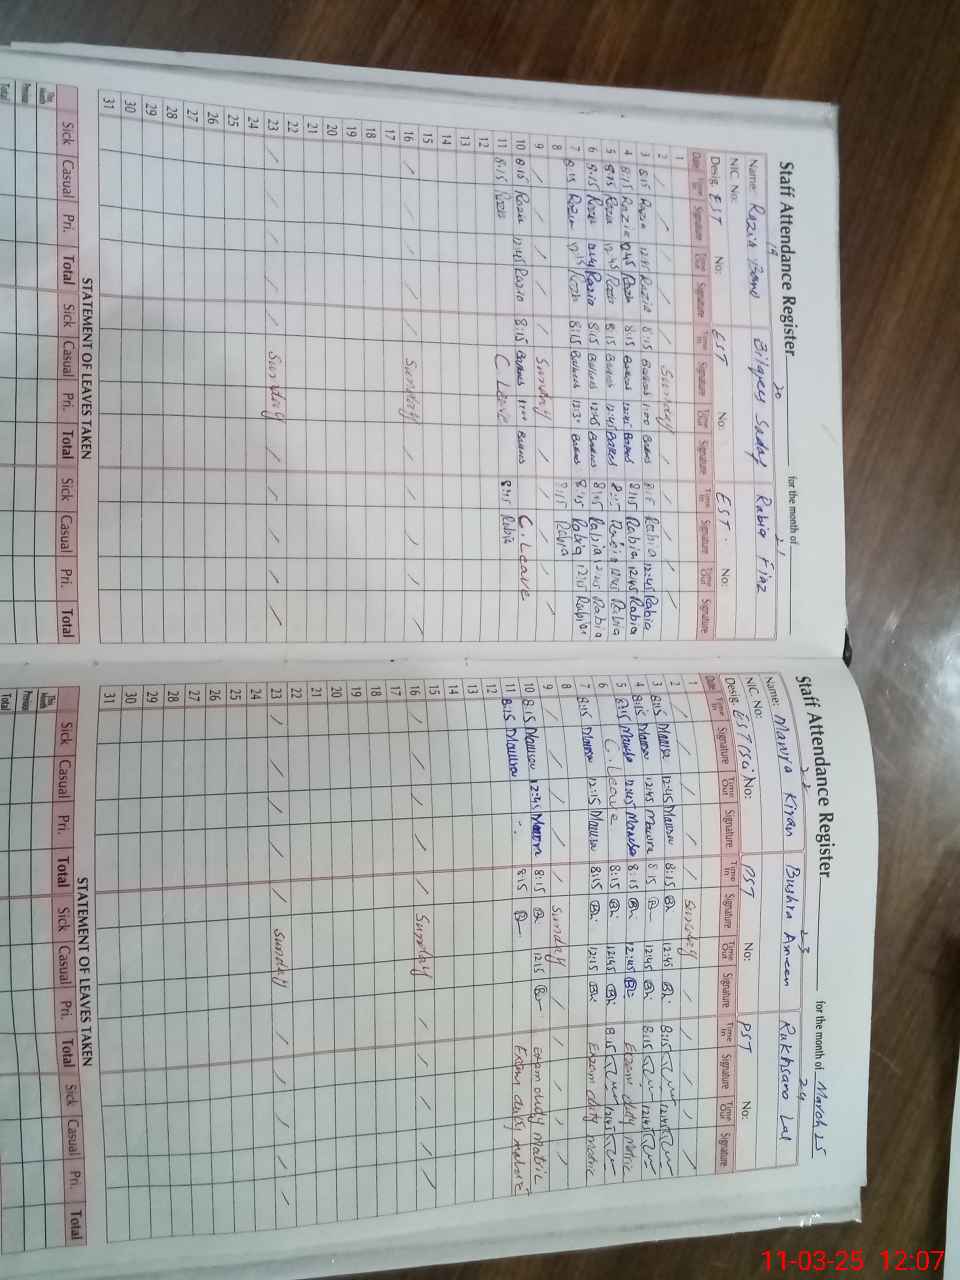 Staff Attendance Register for the month of
19 20 21
Name: Razia Bano Bilqees Sadaf Rabia Fiaz
NIC. No:
Desig. EST No: EST No: EST No:
Date Time In Signature Time Out Signature Time In Signature Time Out Signature Time In Signature Time Out Signature
1
2 Sunday
3 8:15 Razia 12:45 Razia 8:15 1:00 8:15 Rabia 12:45 Rabia
4 8:15 Razia 12:45 8:15 12:45 8:15 Rabia 12:45 Rabia
5 8:15 12:45 8:15 12:45 Rabia 12:45 Rabia
6 8:15 Razia 8:15 12:45 8:15 Rabia 12:45 Rabia
7 8:15 Razia 12:15 8:15 12:30 8:15 Rabia 12:15 Rabia
8 8:15 Rabia
9 Sunday
10 8:15 Razia 12:45 Razia 8:15 C. Leave
11 8:15 Razia C. Leave 8:15 Rabia
12
13
14
15
16 Sunday
17
18
19
20
21
22
23 Sunday
24
25
26
27
28
29
30
31
STATEMENT OF LEAVES TAKEN
Sick Casual Pri. Total Sick Casual Pri. Total Sick Casual Pri. Total
This Month
Previous
Total
Staff Attendance Register for the month of March 25
22 23 24
Name: Mawra Kiran Bushra Ameen Rukhsana Lal
NIC. No:
Desig. EST (Sci) No: PST No: PST No:
Date Time In Signature Time Out Signature Time In Signature Time Out Signature Time In Signature Time Out Signature
1
2 Sunday
3 8:15 Mawra 12:45 Mawra 8:15 12:45 8:15 12:45
4 8:15 Mawra 12:45 Mawra 8:15 12:45 8:15 12:45
5 8:15 Mawra 12:45 Mawra 8:15 2:45 Exam duty Matric
6 C. Leave 8:15 12:45 8:15 12:45
7 8:15 Mawra 12:15 Mawra 8:15 12:15 Exam duty Matric
8
9 Sunday
10 8:15 Mawra 12:45 Mawra 8:15 12:15 Exam duty Matric
11 8:15 Mawra 8:15 Exam duty Matric
12
13
14
15
16 Sunday
17
18
19
20
21
22
23 Sunday
24
25
26
27
28
29
30
31
STATEMENT OF LEAVES TAKEN
Sick Casual Pri. Total Sick Casual Pri. Total Sick Casual Pri. Total
This Month
Previous
Total
11-03-25 12:07